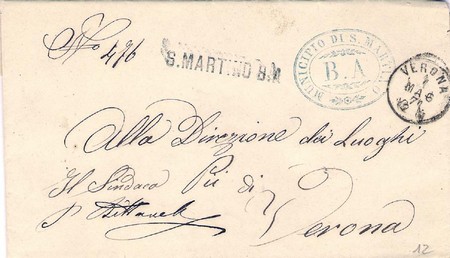 No 476
S. MARTINO B.A
MUNICIPIO DI S. MARTINO
B. A
VERONA
MAG
Alla Direzione dei Luoghi
Il Sindaco Pii di
Verona
12